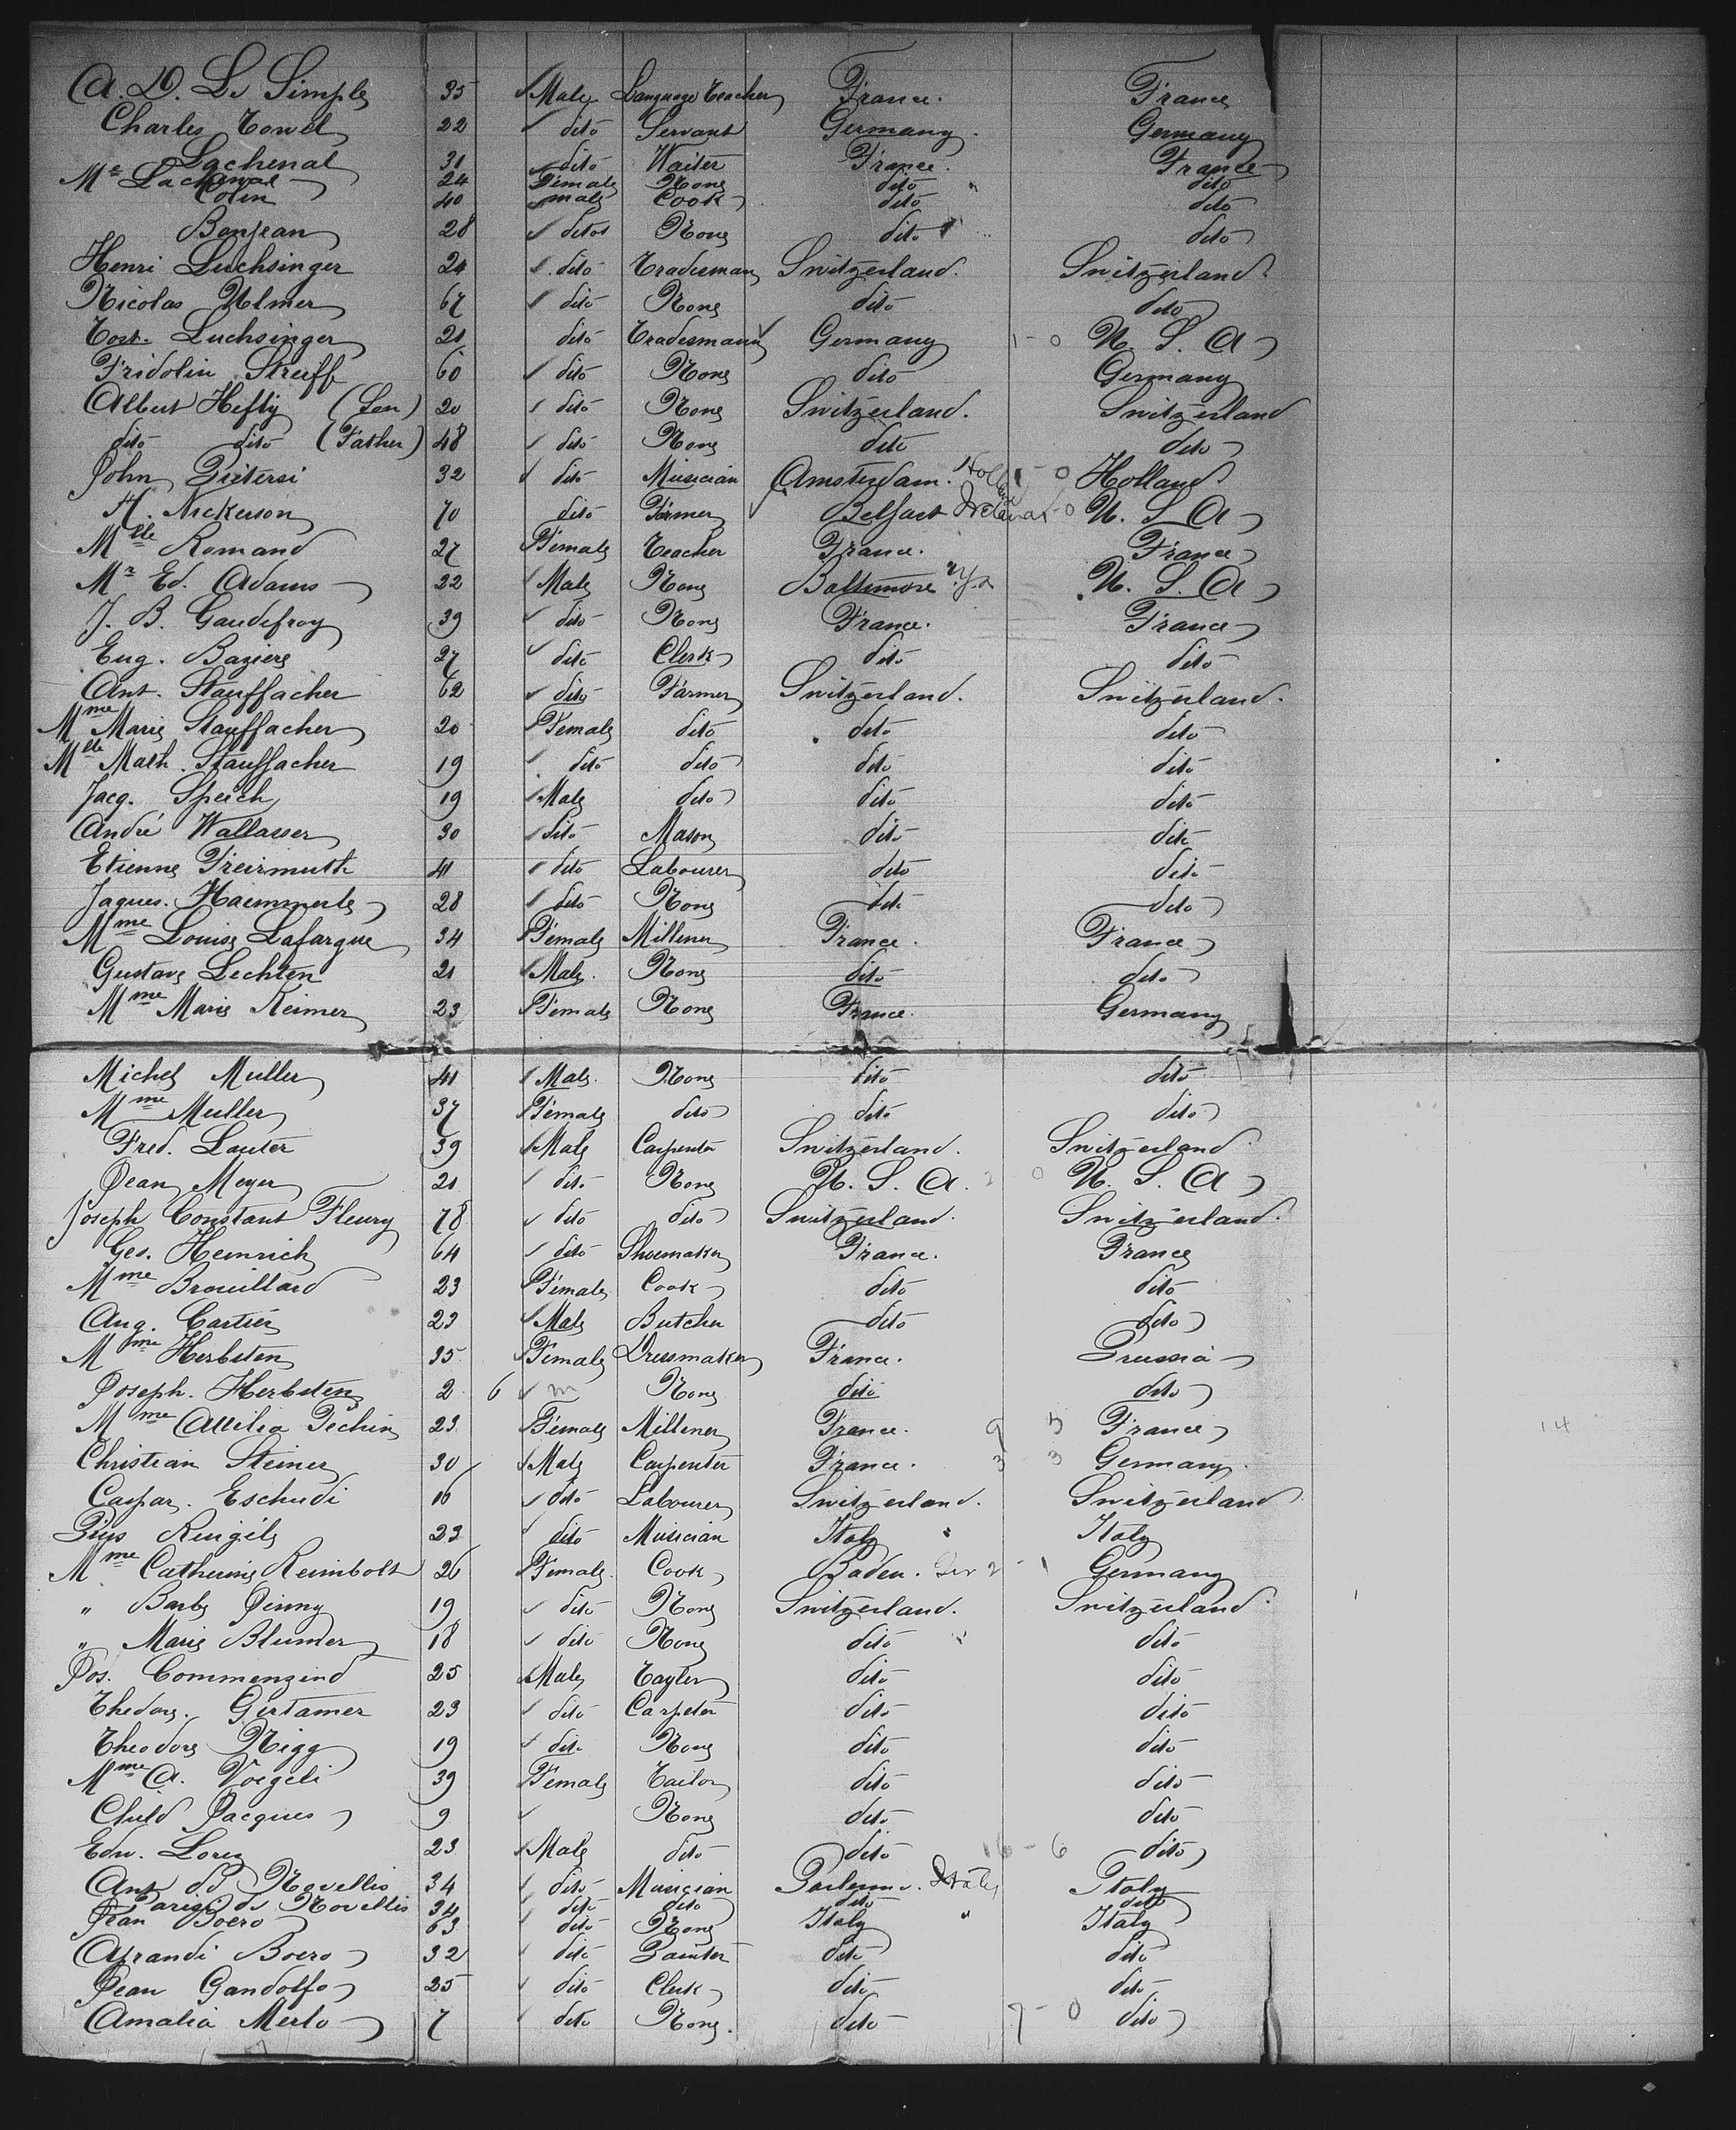 A. D. Le Simple 35 Male Language Teacher France. France
Charles Towel 22 dito Servant Germany. Germany
Lachenal 31 dito Waiter France. France
Me Lachenal 24 Female None dito dito
Colin 40 male Cook dito dito
Bonjean 28 dito None dito dito
Henri Luchsinger 24 dito Tradesman Switzerland. Switzerland.
Nicolas Ulmer 67 dito None dito dito
Tost. Luchsinger 21 dito Tradesmann Germany 1-0 U. S. A
Fridolin Streiff 60 dito None dito Germany
Albert Hefty (Son) 20 dito None Switzerland. Switzerland
dito dito (Father) 48 dito None dito dito
John Pietersi 32 dito Musician Amsterdam. Holland 1-0 Holland
H. Nickerson 70 dito Farmer Belfast U. S. A
Mlle Romand 27 Female Teacher France. France
Mr Ed. Adams 22 Male None Baltimore U. S. A
J. B. Gaudefroy 39 dito None France. France
Eug. Baziere 27 dito Clerk dito dito
Ant. Stauffacher 62 dito Farmer Switzerland. Switzerland.
Mme Marie Stauffacher 20 Female dito dito dito
Mlle Math. Stauffacher 19 dito dito dito dito
Jacq. Speich 19 Male dito dito dito
André Wallasser 30 dito Mason dito dito
Etienne Freirmuth 41 dito Labourer dito dito
Jaques. Haemmerle 28 dito None dito dito
Mme Louise Lafargue 34 Female Milliner France. France
Gustave Lechten 21 Male. None dito dito
Mme Marie Reimer 23 Female None France. Germany
Michel Muller 41 Male. None dito dito
Mme Muller 37 Female dito dito dito
Fred. Lauter 39 Male Carpenter Switzerland. Switzerland
Jean Meyer 21 dito None U. S. A. 0 U. S. A
Joseph Constant Fleury 78 dito dito Switzerland. Switzerland.
Geo. Heinrich 64 dito Shoemaker France. France
Mme Brouillard 23 Female Cook dito dito
Aug. Cartier 23 Male Butcher dito dito
Mme Herbsten 35 Female Dressmaker France. Prussia
Joseph. Herbsten 2 6 m None dito dito
Mme Attilia Pechin 23 Female Milliner France. 9 5 France 14
Christian Steiner 30 Male Carpenter France. 3 3 Germany.
Caspar. Eschudi 16 dito Labourer Switzerland. Switzerland
Pius Ruigele 23 dito Musician Italy Italy
Mme Catherine Reimbolt 26 Female Cook Baden. Ger 2-1 Germany
" Barbe Jenny 19 dito None Switzerland. Switzerland 1
" Marie Blumer 18 dito None dito dito
Jos. Commenzind 25 Male Tayler dito dito
Thedore. Gertamer 23 dito Carpeter dito dito
Theodore Nigg 19 dito None dito dito
Mme A. Voegeli 39 Female Tailor dito dito
Child Jacques 9 None dito dito
Edw. Lorez 23 Male dito dito 16-6 dito
Ant. di Novellis 34 dito Musician Italy Italy
Parisi di Novellis 34 dito dito dito dito
Jean Boero 63 dito None Italy " Italy
Aprandi Boero 32 dito Painter dito dito
Jean Gandolfo 25 dito Clerk dito dito
Amalia Merlo 7 dito None. dito 7-0 dito